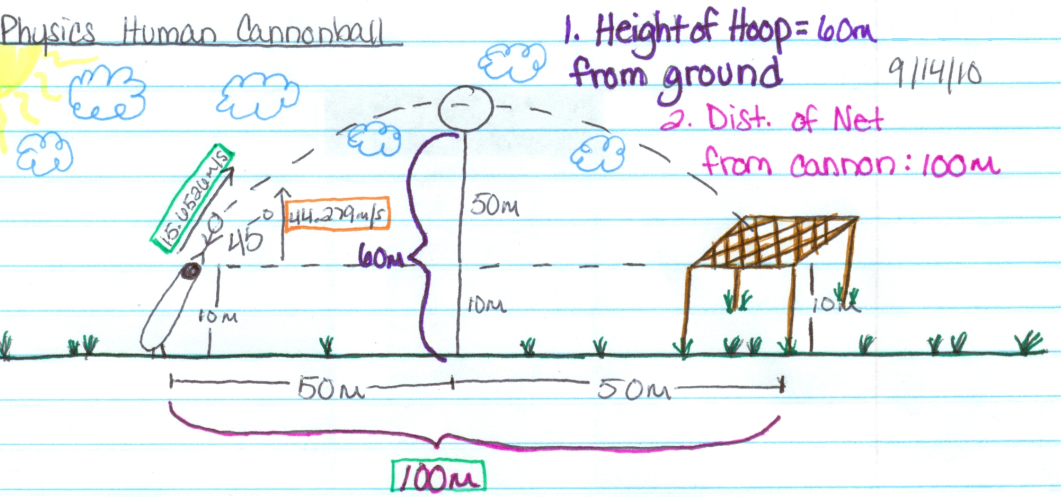 Physics Human Cannonball
1. Height of Hoop = 60m
from ground
9/14/10
2. Dist. of Net
from cannon: 100m
15.6526m/s
45°
44.279m/s
50m
60m
10m
10m
10m
50m
50m
100m